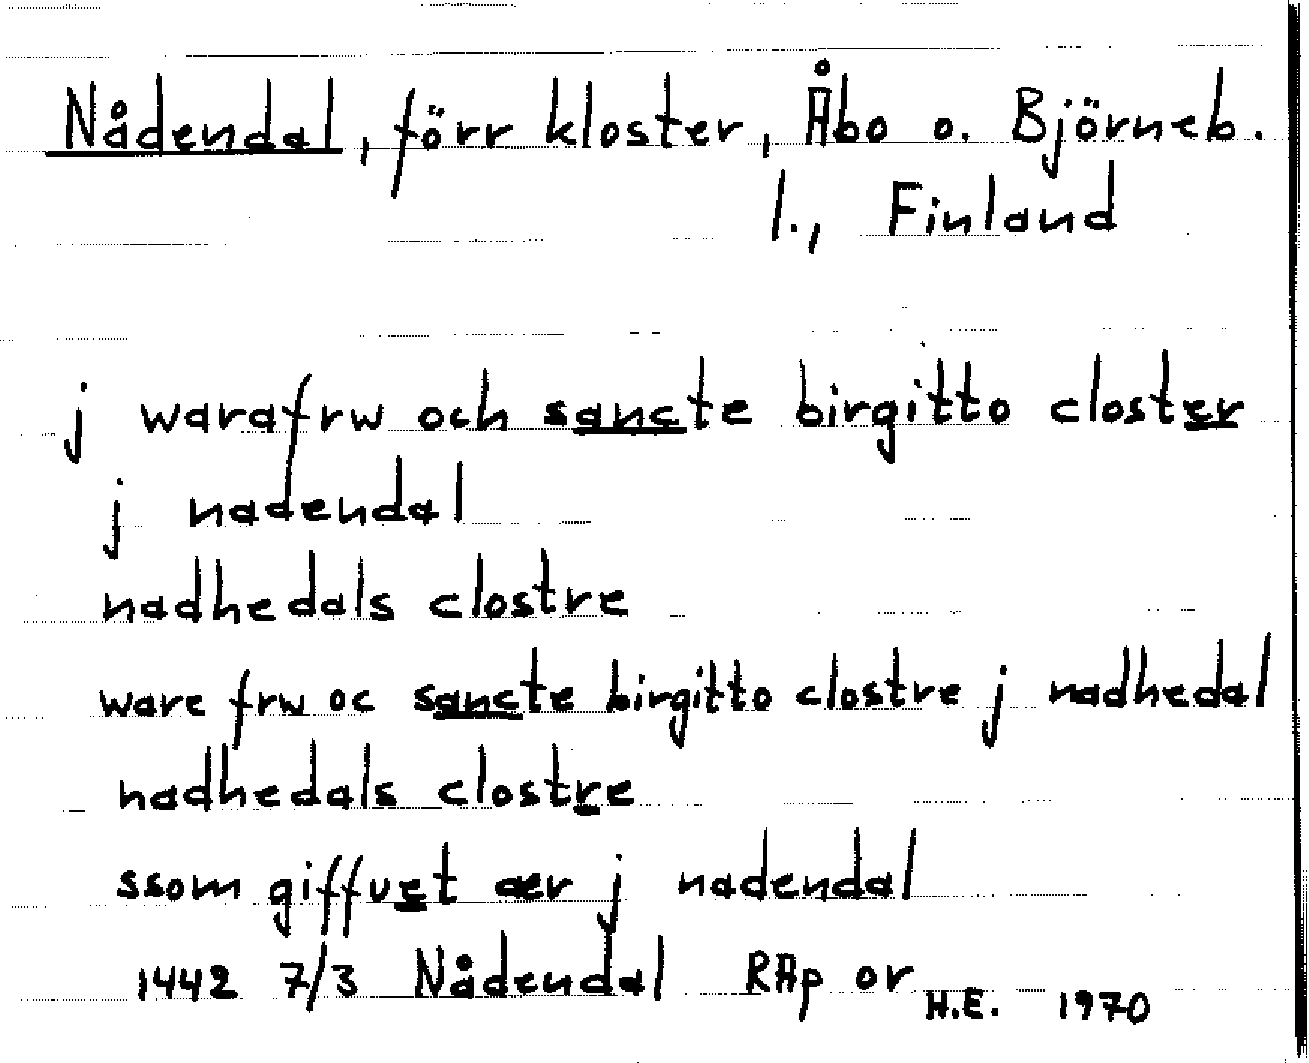 Nådendal, förr kloster, Åbo o. Björneb.
l., Finland
j warafrw och sancte birgitto closter
j nadendal
nadhedals clostre
ware frw oc sancte birgitto clostre j nadhedal
nadhedals clostre
ssom giffuet ær j nadendal
1442 7/3 Nådendal RAp or
H.E. 1970